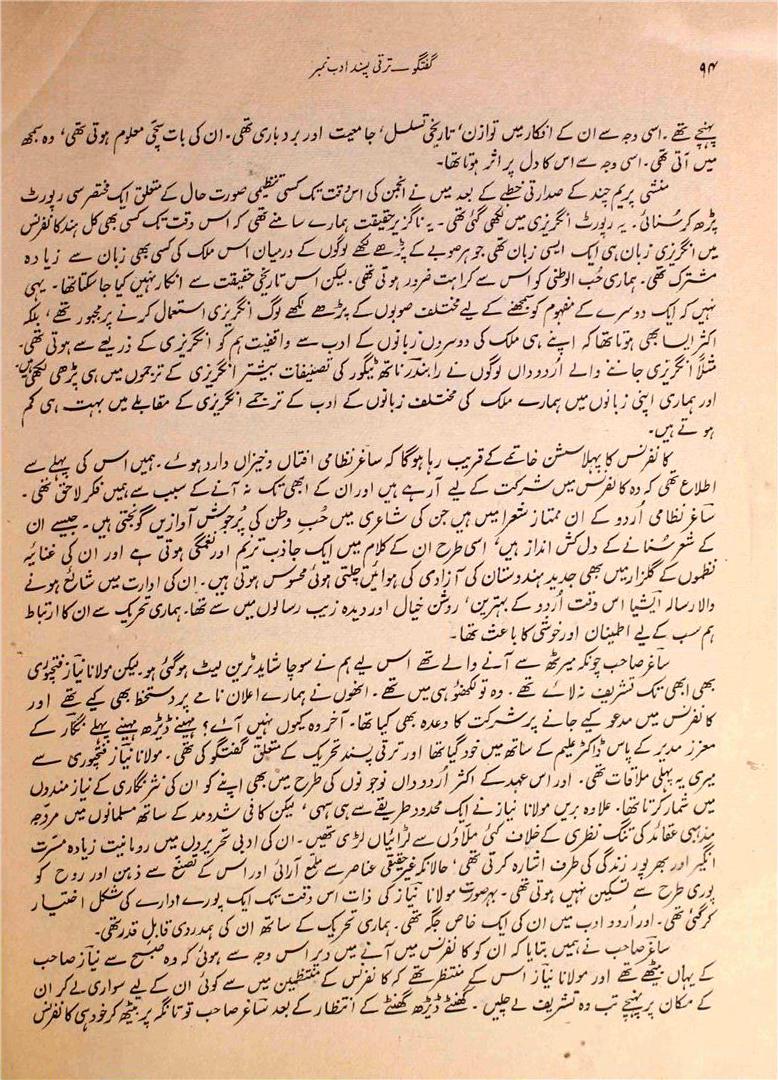 ۹۴
گفتگو ــ ترقی پسند ادب نمبر
پہنچے تھے۔ اسی وجہ سے ان کے افکار میں توازن، تاریخی تسلسل، جامعیت اور بردباری تھی۔ ان کی بات سچّی معلوم ہوتی تھی، وہ سمجھ
میں آتی تھی۔ اسی وجہ سے اس کا دل پر اثر ہوتا تھا۔
منشی پریم چند کے صدارتی خطبے کے بعد میں نے انجمن کی اس وقت تک کسی تنظیمی صورت حال کے متعلق ایک مختصر سی رپورٹ
پڑھ کر سُنائی۔ یہ رپورٹ انگریزی میں لکھی گئی تھی۔ یہ ناگزیر حقیقت ہمارے سامنے تھی کہ اس وقت تک کسی بھی کل ہند کانفرنس
میں انگریزی زبان ہی ایک ایسی زبان تھی جو ہر صوبے کے پڑھے لکھے لوگوں کے درمیان اس ملک کی کسی بھی زبان سے زیادہ
مشترک تھی۔ ہماری حُب الوطنی کو اس سے کراہت ضرور ہوتی تھی۔ لیکن اس تاریخی حقیقت سے انکار نہیں کیا جا سکتا تھا۔ یہی
نہیں کہ ایک دوسرے کے مفہوم کو سمجھنے کے لیے مختلف صوبوں کے پڑھے لکھے لوگ انگریزی استعمال کرنے پر مجبور تھے، بلکہ
اکثر ایسا بھی ہوتا تھا کہ اپنے ہی ملک کی دوسروں زبانوں کے ادب سے واقفیت ہم کو انگریزی کے ذریعے سے ہوتی تھی۔
مثلاً انگریزی جاننے والے اُردو داں لوگوں نے رابندر ناتھ ٹیگور کی تصنیفات بیشتر انگریزی کے ترجموں میں ہی پڑھی تھیں۔
اور ہماری اپنی زبانوں میں ہمارے ملک کی مختلف زبانوں کے ادب کے ترجمے انگریزی کے مقابلے میں بہت ہی کم
ہوتے ہیں۔
کانفرنس کا پہلا سشن خاتمے کے قریب رہا ہوگا کہ ساغر نظامی افتاں و خیزاں وارد ہوئے۔ ہمیں اس کی پہلے سے
اطلاع تھی کہ وہ کانفرنس میں شرکت کے لیے آ رہے ہیں اور ان کے ابھی تک نہ آنے کے سبب سے ہمیں فکر لاحق تھی۔
ساغر نظامی اُردو کے ان ممتاز شعرا میں ہیں جن کی شاعری میں حُبِ وطن کی پُرجوش آوازیں گونجتی ہیں۔ جیسے ان
کے شعر سُنانے کے دل کش انداز ہیں، اسی طرح ان کے کلام میں ایک جاذب ترنم اور نغمگی ہوتی ہے اور ان کی غنائیہ
نظموں کے گلزار میں بھی جدید ہندوستان کی آزادی کی ہوائیں چلتی ہوئی محسوس ہوتی ہیں۔ ان کی ادارت میں شائع ہونے
والا رسالہ ایشیا اس وقت اُردو کے بہترین، روشن خیال اور دیدہ زیب رسالوں میں سے تھا۔ ہماری تحریک سے ان کا ارتباط
ہم سب کے لیے اطمینان اور خوشی کا باعث تھا۔
ساغر صاحب چونکہ میرٹھ سے آنے والے تھے اس لیے ہم نے سوچا شاید ٹرین لیٹ ہو گئی ہو۔ لیکن مولانا نیاز فتحپوری
بھی ابھی تک تشریف نہ لائے تھے۔ وہ تو لکھنؤ ہی میں تھے۔ انھوں نے ہمارے اعلان نامے پر دستخط بھی کیے تھے اور
کانفرنس میں مدعو کیے جانے پر شرکت کا وعدہ بھی کیا تھا۔ آخر وہ کیوں نہیں آئے؟ مہینے ڈیڑھ مہینے پہلے نگار کے
معزز مدیر کے پاس ڈاکٹر علیم کے ساتھ میں خود گیا تھا اور ترقی پسند تحریک کے متعلق گفتگو کی تھی۔ مولانا نیاز فتحپوری سے
میری یہ پہلی ملاقات تھی۔ اور اس عہد کے اکثر اُردو داں نوجونوں کی طرح میں بھی اپنے کو ان کی نثر نگاری کے نیازمندوں
میں شمار کرتا تھا۔ علاوہ بریں مولانا نیاز نے ایک محدود طریقے سے ہی سہی، لیکن کافی شد و مد کے ساتھ مسلمانوں میں مروّجہ
مذہبی عقائد کی تنگ نظری کے خلاف کئی ملّاؤں سے لڑائیاں لڑی تھیں۔ ان کی ادبی تحریروں میں رومانیت زیادہ مسرّت
انگیز اور بھرپور زندگی کی طرف اشارہ کرتی تھی، حالانکہ غیر حقیقی عناصر سے ملمع آرائی اور اس کے تصنع سے ذہن اور روح کو
پوری طرح سے تسکین نہیں ہوتی تھی۔ بہرصورت مولانا نیاز کی ذات اس وقت تک ایک پورے ادارے کی شکل اختیار
کر گئی تھی۔ اور اُردو ادب میں ان کی ایک خاص جگہ تھی۔ ہماری تحریک کے ساتھ ان کی ہمدردی قابل قدر تھی۔
ساغر صاحب نے ہمیں بتایا کہ ان کو کانفرنس میں آنے میں دیر اس وجہ سے ہوئی کہ وہ صبح سے نیاز صاحب
کے یہاں بیٹھے تھے اور مولانا نیاز اس کے منتظر تھے کہ کانفرنس کے منتظمین میں سے کوئی ان کے لیے سواری لے کر ان
کے مکان پر پہنچے تب وہ تشریف لے چلیں۔ گھنٹے ڈیڑھ گھنٹے کے انتظار کے بعد ساغر صاحب تو تانگہ پر بیٹھ کر خود ہی کانفرنس